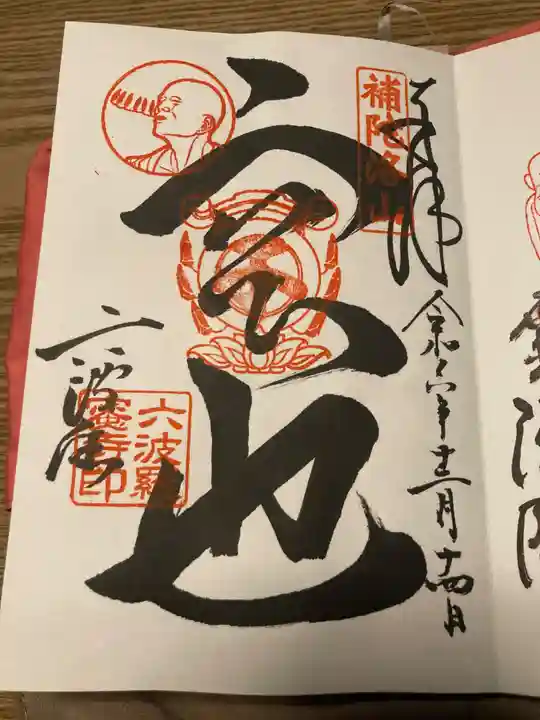 奉拝
補陀洛山
令和六年十二月十四日
空也
六波羅
六波羅
蜜寺印